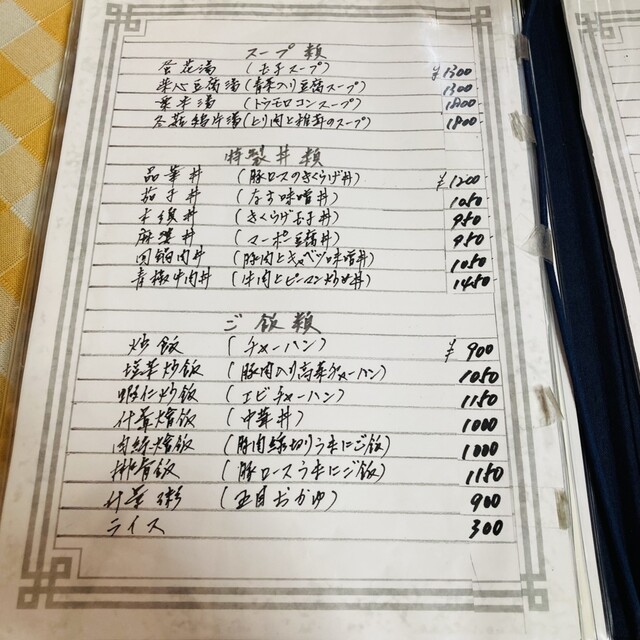 スープ類
蛋花湯 (玉子スープ) ¥1300
菜心豆腐湯 (青菜入り豆腐スープ) 1300
粟米湯 (トウモロコシスープ) 1800
冬菇鶏片湯 (とり肉と椎茸のスープ) 1800
特製丼類
品華丼 (豚ロースのきくらげ丼) ¥1200
茄子丼 (なす味噌丼) 1050
木須丼 (きくらげ玉子丼) 950
麻婆丼 (マーボー豆腐丼) 950
回鍋肉丼 (豚肉とキャベツ味噌丼) 1050
青椒牛肉丼 (牛肉とピーマン炒め丼) 1450
ご飯類
炒飯 (チャーハン) ¥900
(豚肉入り高菜チャーハン) 1050
蝦仁炒飯 (エビチャーハン) 1150
什景燴飯 (中華丼) 1000
肉絲燴飯 (豚肉細切りうまにご飯) 1000
排骨飯 (豚ロースうまにご飯) 1150
什景粥 (五目おかゆ) 900
ライス 300